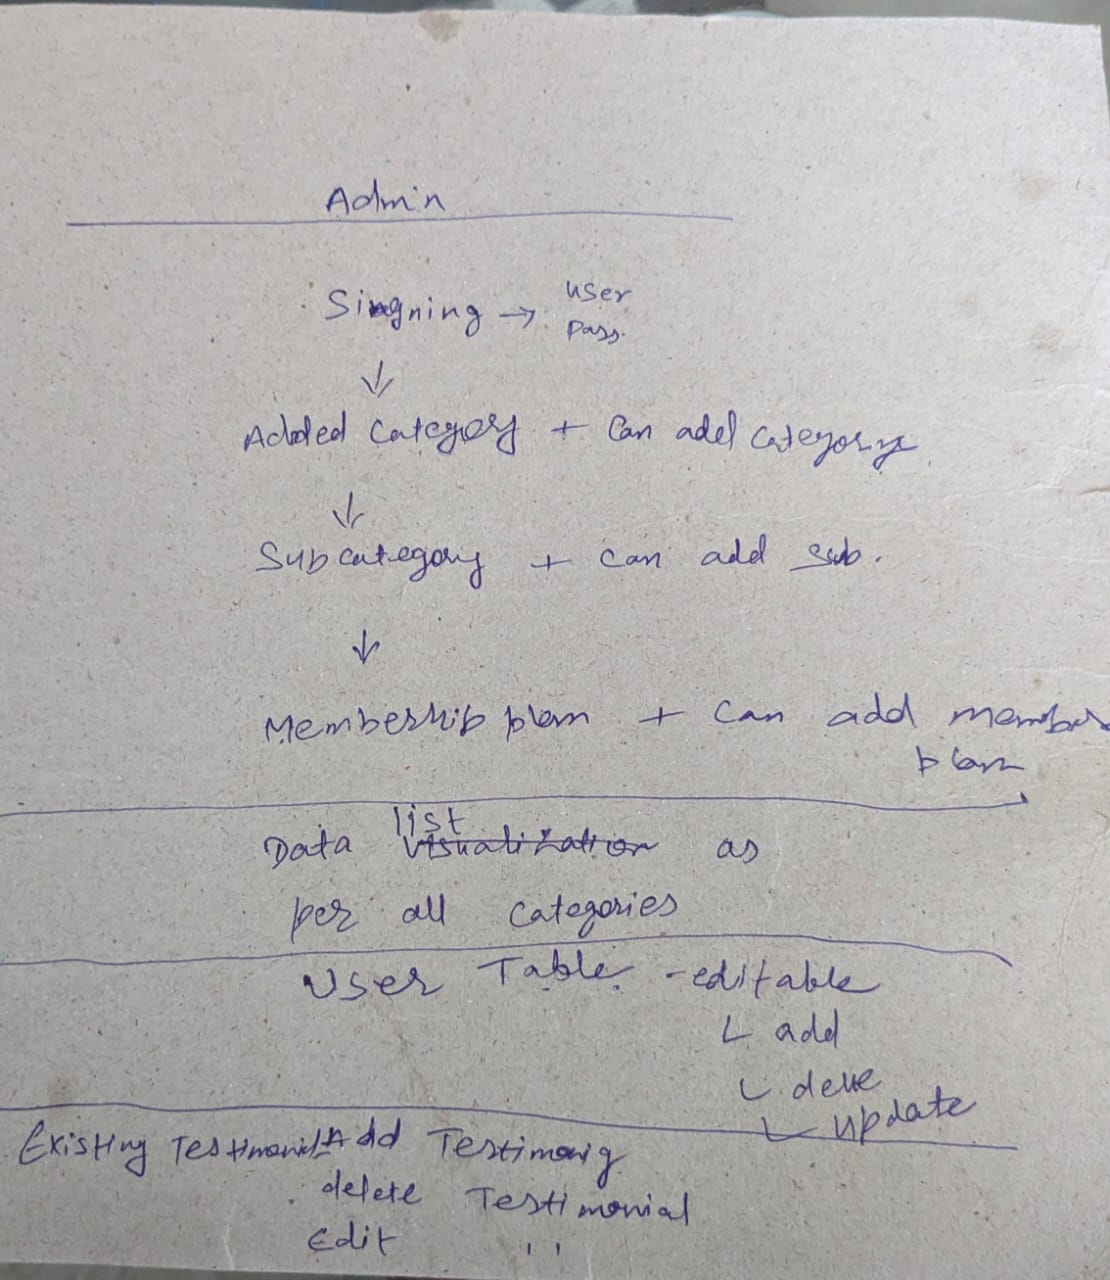 Admin
Singning → user
pass.
↓
Added Category + Can add category
↓
Subcategory + Can add sub.
↓
Membership plan + Can add member
plan
list
Data Visualization as
per all categories
User Table - editable
add
delte
update
Existing Testimonial Add Testimonig
delete Testimonial
Edit ''